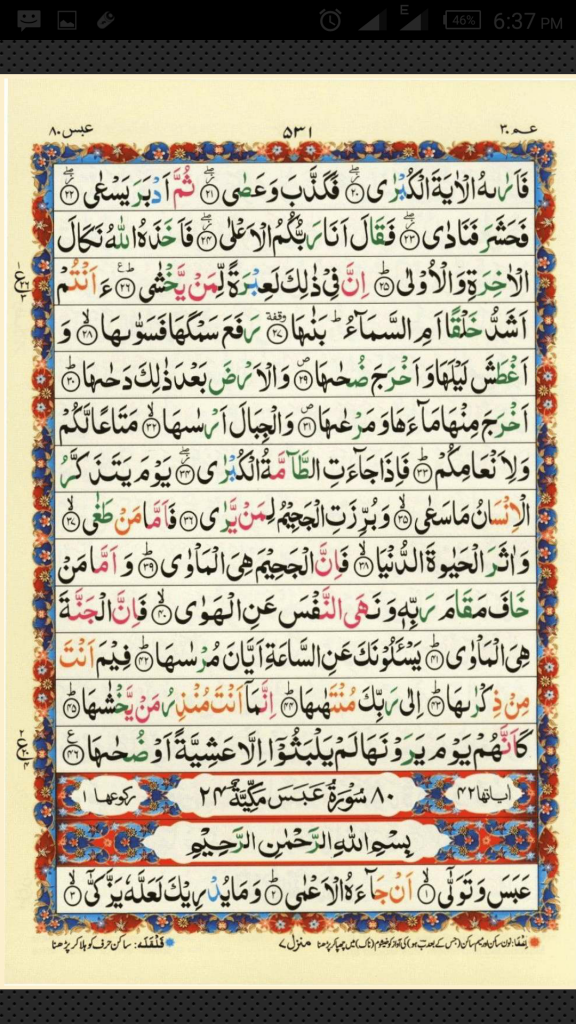 E 46% 6:37 PM
عبس ٨٠ ٥٣١ عـم ٣٠
فَاَرٰىهُ الْاٰيَةَ الْكُبْرٰى ﴿٢٠﴾ فَكَذَّبَ وَعَصٰى ﴿٢١﴾ ثُمَّ اَدْبَرَ يَسْعٰى ﴿٢٢﴾
فَحَشَرَ فَنَادٰى ﴿٢٣﴾ فَقَالَ اَنَا رَبُّكُمُ الْاَعْلٰى ﴿٢٤﴾ فَاَخَذَهُ اللّٰهُ نَكَالَ
الْاٰخِرَةِ وَالْاُوْلٰى ﴿٢٥﴾ اِنَّ فِيْ ذٰلِكَ لَعِبْرَةً لِّمَنْ يَّخْشٰى ﴿٢٦﴾ ءَاَنْتُمْ
اَشَدُّ خَلْقًا اَمِ السَّمَآءُ ؕ بَنٰىهَا ﴿٢٧﴾ وقفة رَفَعَ سَمْكَهَا فَسَوّٰىهَا ﴿٢٨﴾ وَ
اَغْطَشَ لَيْلَهَا وَاَخْرَجَ ضُحٰىهَا ﴿٢٩﴾ وَالْاَرْضَ بَعْدَ ذٰلِكَ دَحٰىهَا ﴿٣٠﴾
اَخْرَجَ مِنْهَا مَآءَهَا وَمَرْعٰىهَا ﴿٣١﴾ وَالْجِبَالَ اَرْسٰىهَا ﴿٣٢﴾ مَتَاعًا لَّكُمْ
وَلِاَنْعَامِكُمْ ﴿٣٣﴾ فَاِذَا جَآءَتِ الطَّآمَّةُ الْكُبْرٰى ﴿٣٤﴾ يَوْمَ يَتَذَكَّرُ
الْاِنْسَانُ مَا سَعٰى ﴿٣٥﴾ وَبُرِّزَتِ الْجَحِيْمُ لِمَنْ يَّرٰى ﴿٣٦﴾ فَاَمَّا مَنْ طَغٰى ﴿٣٧﴾
وَاٰثَرَ الْحَيٰوةَ الدُّنْيَا ﴿٣٨﴾ فَاِنَّ الْجَحِيْمَ هِيَ الْمَاْوٰى ﴿٣٩﴾ وَاَمَّا مَنْ
خَافَ مَقَامَ رَبِّهٖ وَنَهَى النَّفْسَ عَنِ الْهَوٰى ﴿٤٠﴾ فَاِنَّ الْجَنَّةَ
هِيَ الْمَاْوٰى ﴿٤١﴾ يَسْـَٔلُوْنَكَ عَنِ السَّاعَةِ اَيَّانَ مُرْسٰىهَا ﴿٤٢﴾ فِيْمَ اَنْتَ
مِنْ ذِكْرٰىهَا ﴿٤٣﴾ اِلٰى رَبِّكَ مُنْتَهٰىهَا ﴿٤٤﴾ اِنَّمَآ اَنْتَ مُنْذِرُ مَنْ يَّخْشٰىهَا ﴿٤٥﴾
كَاَنَّهُمْ يَوْمَ يَرَوْنَهَا لَمْ يَلْبَثُوْٓا اِلَّا عَشِيَّةً اَوْ ضُحٰىهَا ﴿٤٦﴾
اٰيَاتُهَا ٤٢ ٨٠ سُوْرَةُ عَبَسَ مَكِّيَّةٌ ٢٤ رُكُوْعُهَا ١
بِسْمِ اللّٰهِ الرَّحْمٰنِ الرَّحِيْمِ
عَبَسَ وَتَوَلّٰٓى ﴿١﴾ اَنْ جَآءَهُ الْاَعْمٰى ﴿٢﴾ وَمَا يُدْرِيْكَ لَعَلَّهٗ يَزَّكّٰٓى ﴿٣﴾
اِخفا: نون ساکن اور میم ساکن (جس کے بعد ب ہو) کی آواز کو خیشوم (ناک) میں چھپا کر پڑھنا منزل ٧ قَلْقَلَه: ساکن حرف کو ہلا کر پڑھنا